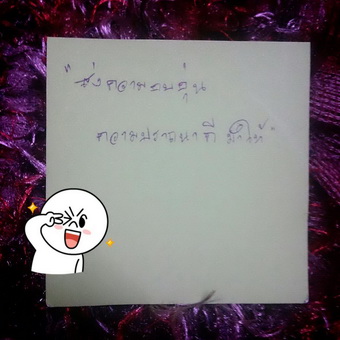 "ส่งความอบอุ่น
ความปราถนาดี มาให้"